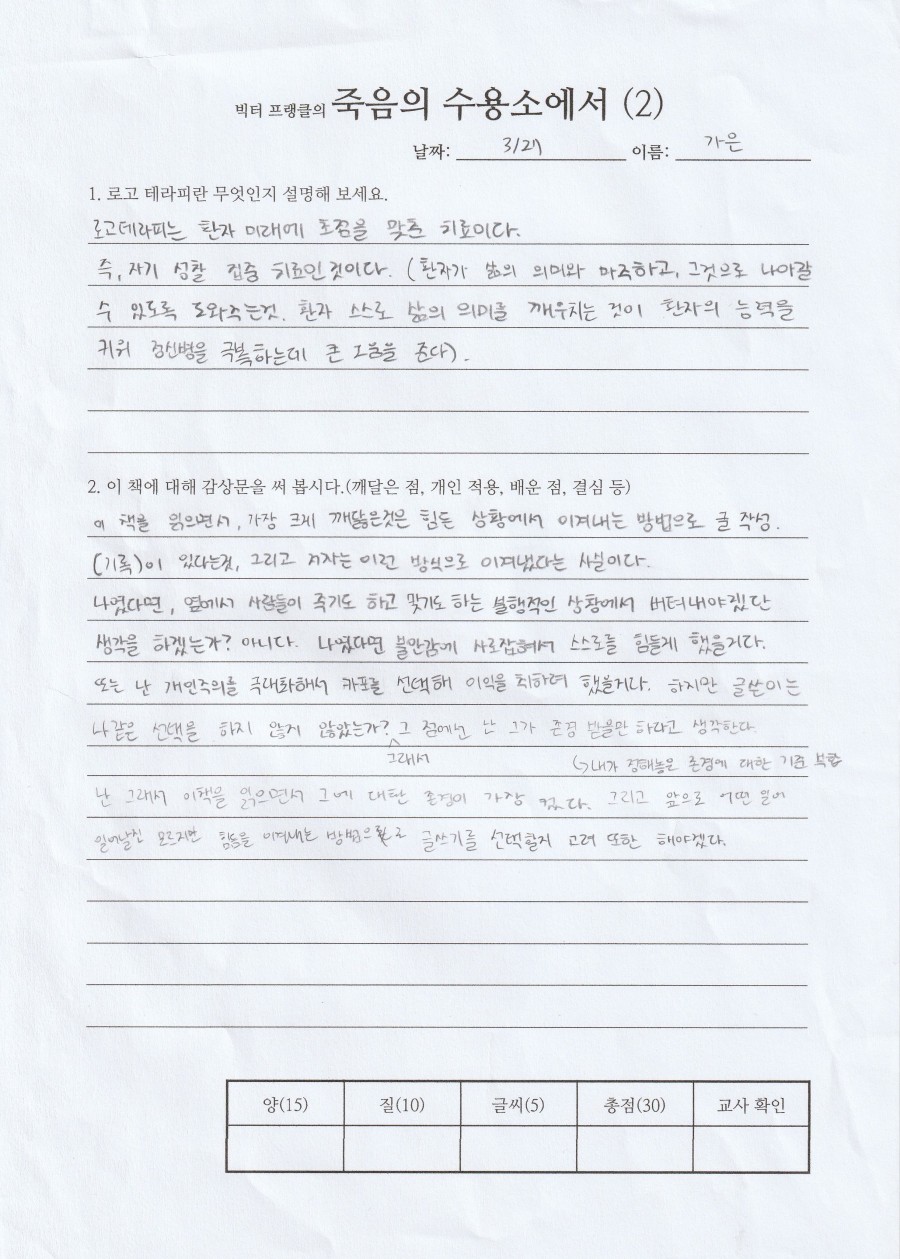 빅터 프랭클의 죽음의 수용소에서 (2)
날짜: 3/27 이름: 가은
1. 로고 테라피란 무엇인지 설명해 보세요.
로고테라피는 환자 미래에 초점을 맞춘 치료이다.
즉, 자기 성찰 집중 치료인것이다. (환자가 삶의 의미와 마주하고, 그것으로 나아갈
수 있도록 도와주는것. 환자 스스로 삶의 의미를 깨우치는 것이 환자의 능력을
키워 정신병을 극복하는데 큰 도움을 준다).
2. 이 책에 대해 감상문을 써 봅시다.(깨달은 점, 개인 적용, 배운 점, 결심 등)
이 책을 읽으면서, 가장 크게 깨닳은것은 힘든 상황에서 이겨내는 방법으로 글 작성.
(기록)이 있다는것, 그리고 저자는 이런 방식으로 이겨냈다는 사실이다.
나였다면, 옆에서 사람들이 죽기도 하고 맞기도 하는 불행적인 상황에서 버텨내야겠단
생각을 하겠는가? 아니다. 나였다면 불안감에 사로잡혀서 스스로를 힘들게 했을거다.
또는 난 개인주의를 극대화해서 카포를 선택해 이익을 취하려 했을거다. 하지만 글쓴이는
나같은 선택을 하지 않지 않았는가? 그 점에선 난 그가 존경 받을만 하다고 생각한다
그래서
↳내가 정해놓은 존경에 대한 기준 부합
난 그래서 이책을 읽으면서 그에 대한 존경이 가장 컸다. 그리고 앞으로 어떤 일이
일어날진 모르지만 힘듦을 이겨내는 방법으로 글쓰기를 선택할지 고려 또한 해야겠다.
양(15) 질(10) 글씨(5) 총점(30) 교사 확인